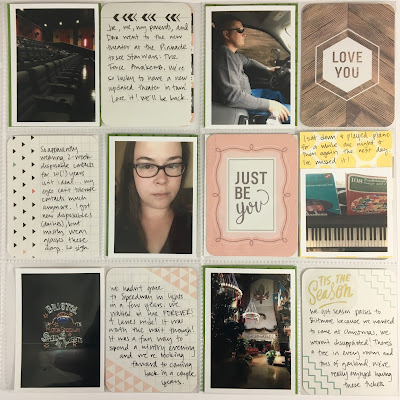 Joe, me, my parents, and
Dan went to the new
theater at the Pinnacle
to see Star Wars: The
Force Awakens. We're
so lucky to have a new
updated theater in town!
Love it! we'll be back.
LOVE
YOU
So apparently
wearing 2-week
disposable contacts
for 10(!) years
isn't ideal... my
eyes can't tolerate
contacts much
anymore. I got
new disposables
(dailies), but
mostly wear
glasses these
days.
JUST
BE
you
I sat down & played piano
for a while one night &
then again the next day.
I've missed it!
BRISTOL
we hadn't gone
to Speedway in Lights
in a few years. We
waited in line FOREVER!
4 lanes wide! It was
worth the wait though!
It was a fun way to
spend a wintry evening
and we're looking
forward to coming
back in a couple
years.
'TIS THE
Season
We got season passes to
Biltmore because we wanted
to come at Christmas. We
weren't disappointed! There's
a tree in every room and
tons of garland. We've
really enjoyed having
these tickets.